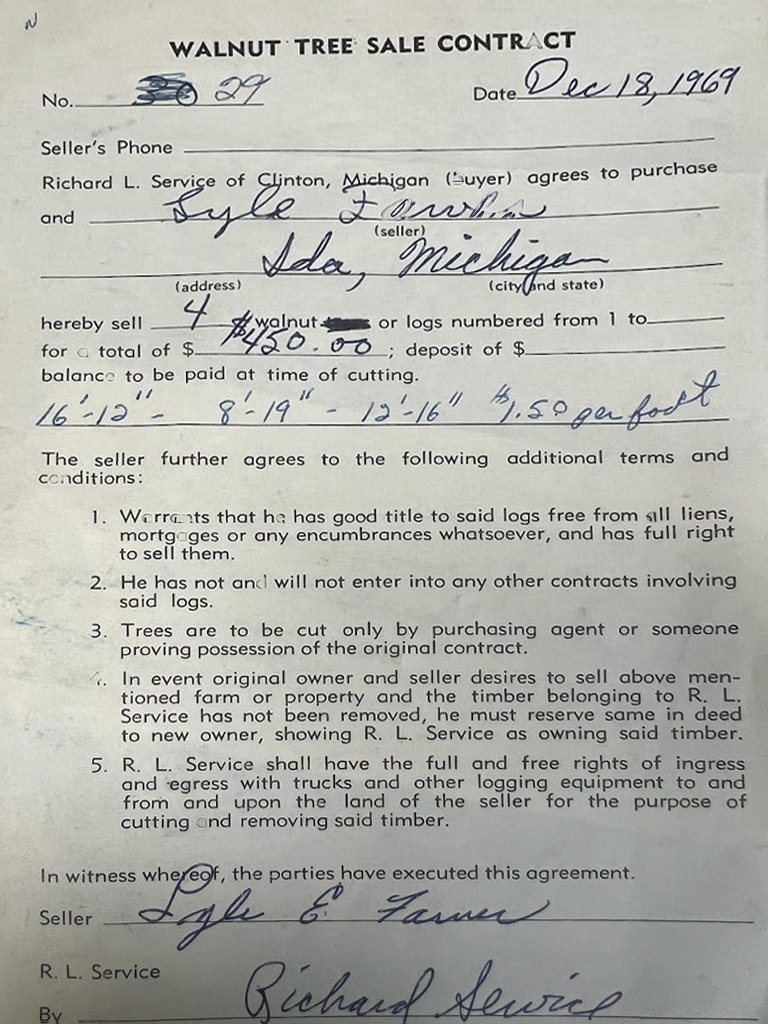 N
WALNUT TREE SALE CONTRACT
No. 29 Date Dec 18, 1969
Seller's Phone
Richard L. Service of Clinton, Michigan (buyer) agrees to purchase
and Lyle
(seller)
Ida, Michigan
(address) (city and state)
hereby sell 4 walnut or logs numbered from 1 to
for a total of $ $450.00 ; deposit of $
balance to be paid at time of cutting.
16'-12" - 8'-19" - 12'-16" $1.50 per foot
The seller further agrees to the following additional terms and
conditions:
1. Warrants that he has good title to said logs free from all liens,
mortgages or any encumbrances whatsoever, and has full right
to sell them.
2. He has not and will not enter into any other contracts involving
said logs.
3. Trees are to be cut only by purchasing agent or someone
proving possession of the original contract.
4. In event original owner and seller desires to sell above men-
tioned farm or property and the timber belonging to R. L.
Service has not been removed, he must reserve same in deed
to new owner, showing R. L. Service as owning said timber.
5. R. L. Service shall have the full and free rights of ingress
and egress with trucks and other logging equipment to and
from and upon the land of the seller for the purpose of
cutting and removing said timber.
In witness whereof, the parties have executed this agreement.
Seller Lyle E. Farver
R. L. Service
By Richard Service